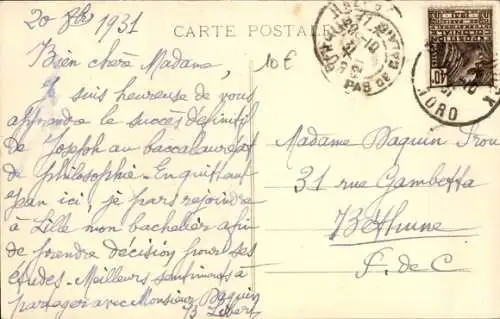 20 8bre 1931
CARTE POSTALE
Bien chère Madame,
10€
Je suis heureuse de vous
apprendre le succès définitif
de Joseph au baccalauréat
de philosophie - En quittant
Jean ici, je pars rejoindre
à Lille mon bachelier afin
de prendre décision pour ses
études - Meilleurs sentiments à
partager avec Monsieur Daquin
Madame Daquin
31 rue Gambetta
Béthune
P. de C
PAS DE CALAIS
NORD
40c